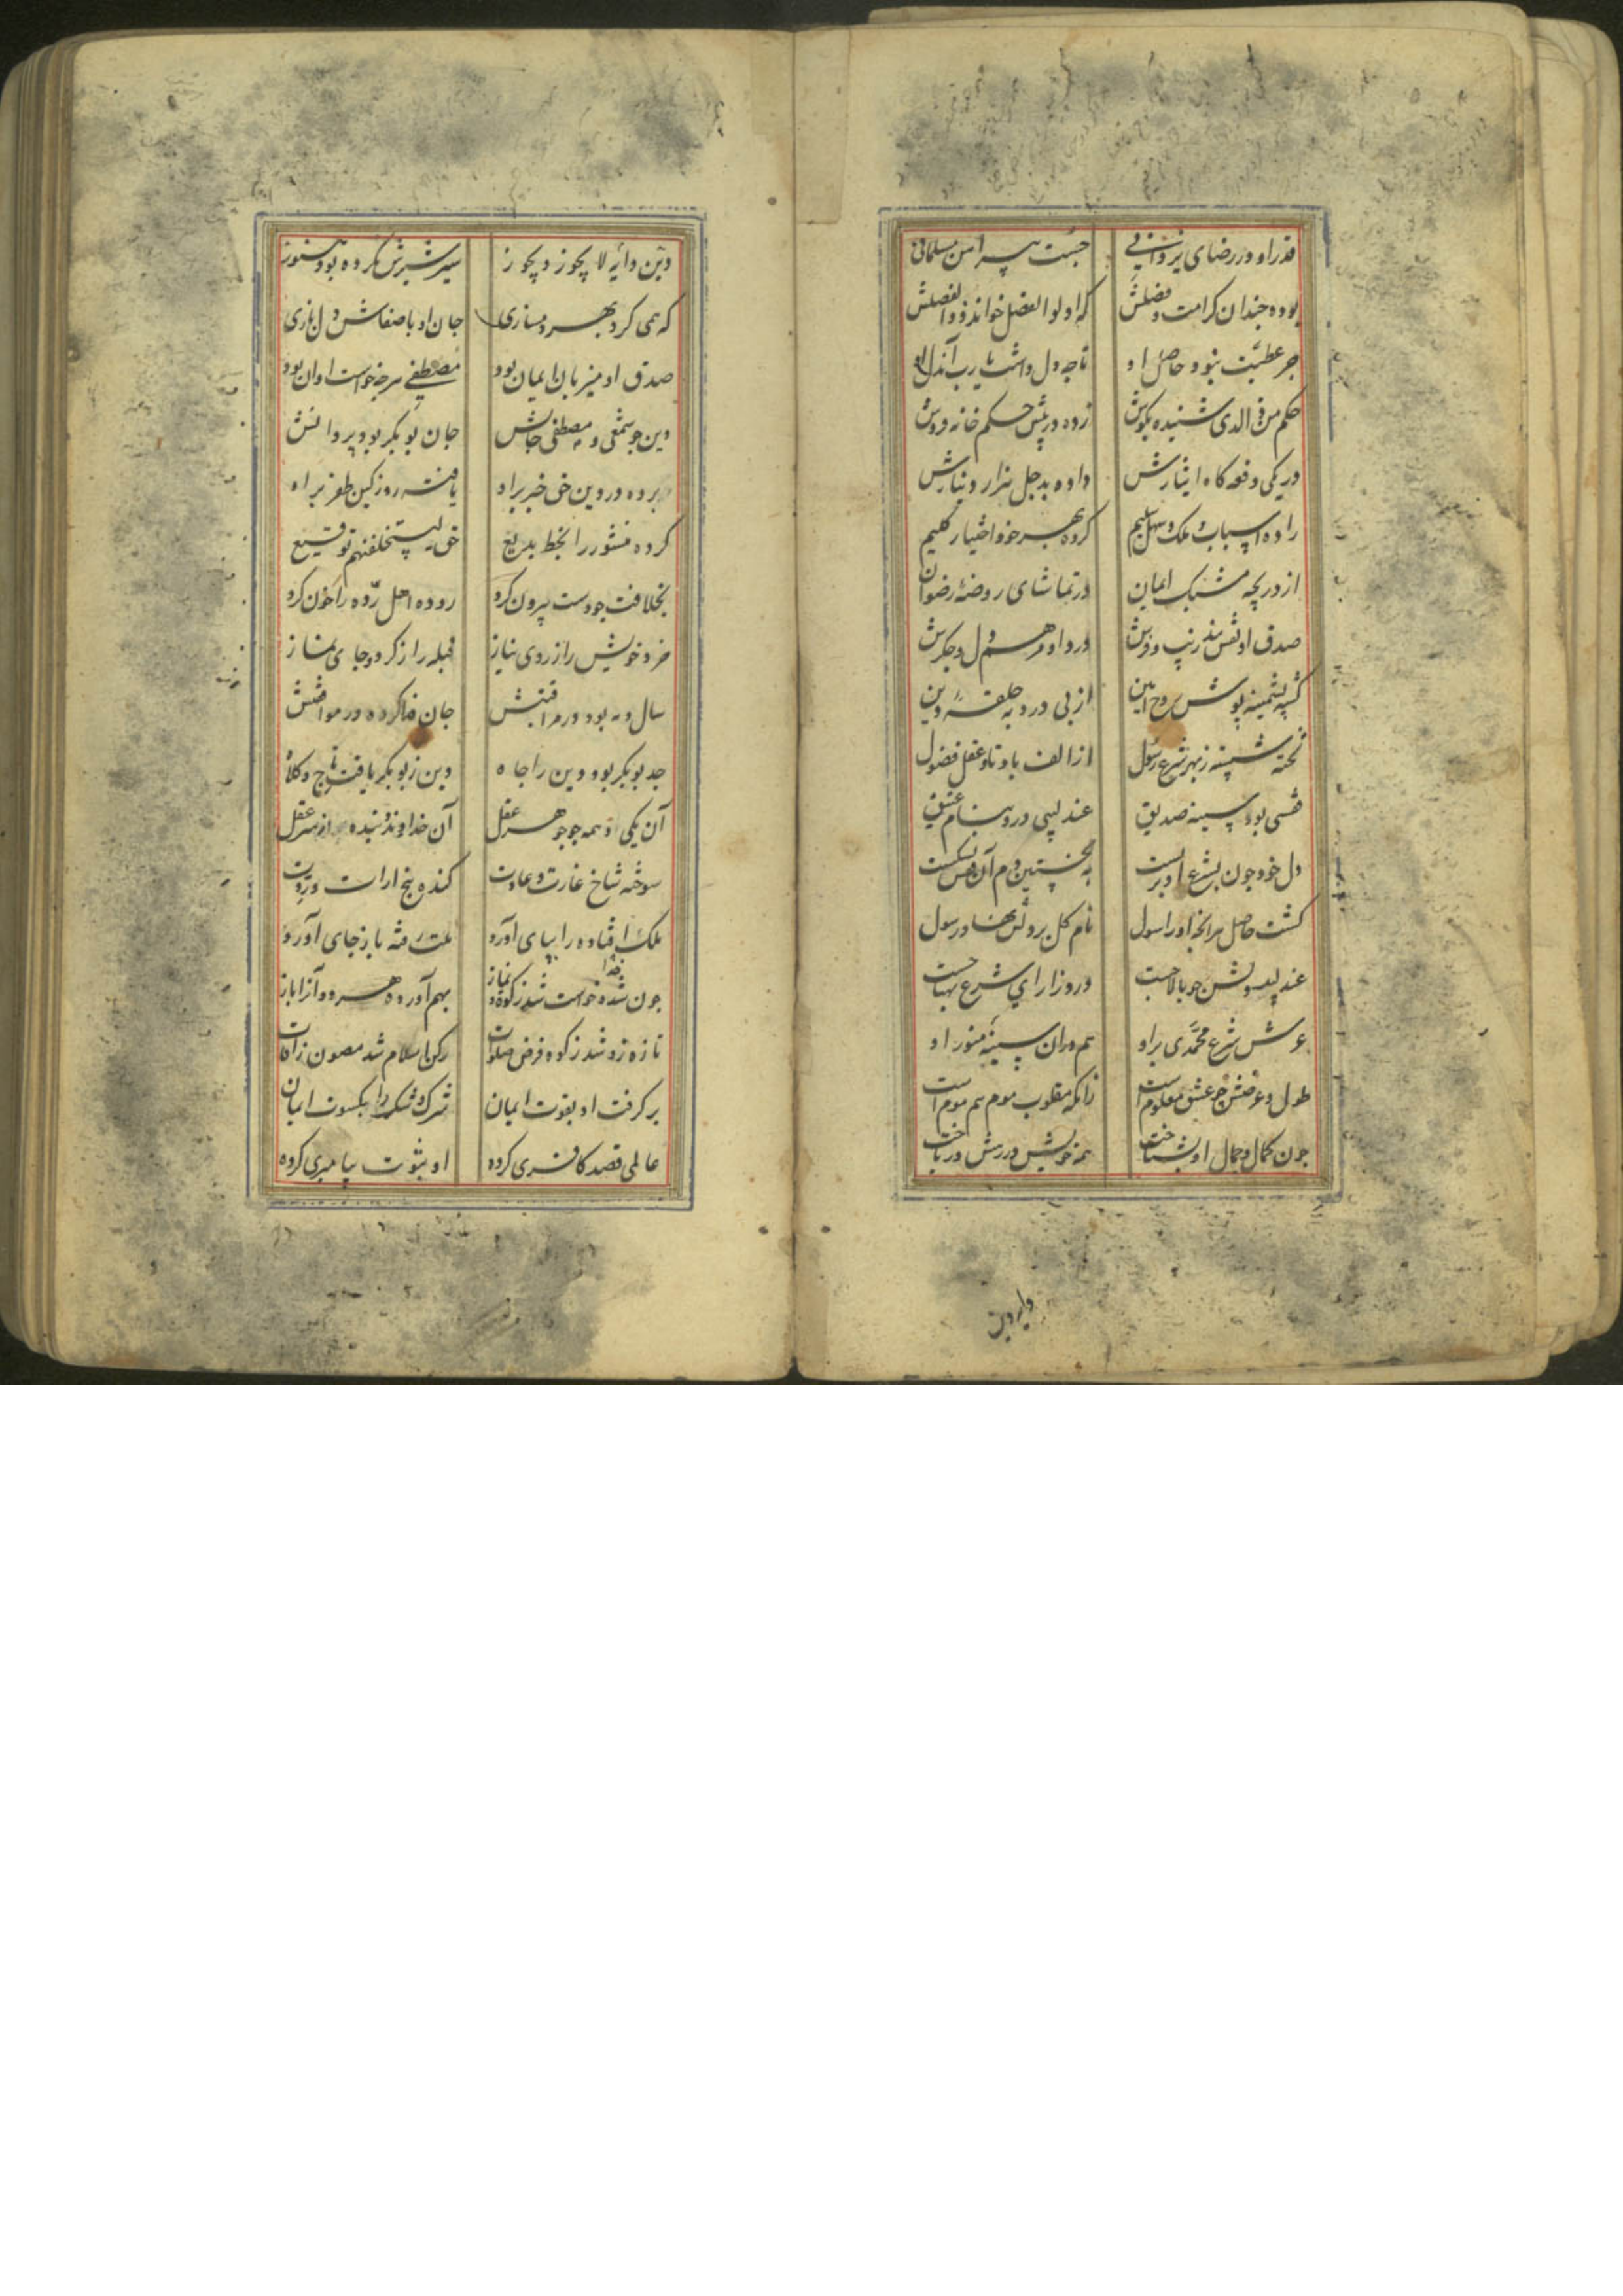 قدر او در رضای یزدانی جست پیراهن مسلمانی
بوده چندان کرامت و فضلش که اولوا الفضل خواند ذو الفضلش
جز عطیت نبود حاصل او
حکم من ذی الذی شنیده بکوش زده در پیش حکم خانه فروش
در یکی دفعه کاه ایثارش داده بد چل هزار دینارش
کرده بهر خود اختیار کلیم
از دریچه مشبک ایمان در تماشای روضه رضوان
صدق او نفس در دل و جکرش
کشته پشمینه پوش روح امین از پی درد به حلقه دین
تخته شسته ز بهر شرع رسول از الف با و تا و عقل فضول
قفسی بود سینه صدیق عندلیبی درو بنام عتیق
دل خود چون بشرع او بربست به نخستین دم آن قفس بشکست
کشت حاصل هر آنچه اورا سول نام کل بر وثن نهاد رسول
عندلیب وثن چو بالا جست درو زارای شرع
عرش شرع محمدی بر او هم دران سینه منور او
طول و عرضش چو عشق معلوم است زانکه مقلوب موم هم موم است
چون کمال و جمال او بشناخت همه خویش در رهش در باخت
وایه دین
دین و دایه لا یجوز و یجوز سیر شیرش نکرده بود هنوز
که همی کرد بهر دمسازی جان او با صفاش دل بازی
صدق او میزبان ایمان بود مصطفی هر چه خواست او آن بود
دین چو شمعی و مصطفی جانش جان بوبکر بود پروانش
برده در دین حق خبر بر او یافته روز کین ظفر بر او
کرده منشور را بخط بدیع حق لیستخلفنهم توقیع
بخلافت چو دست بیرون کرد روده اهل رده را خون کرد
خرد خویش را ز روی نیاز قبله راز کرد و جای نماز
سال و مه بود در مراقبتش جان فدا کرده در موافقتش
جد بوبکر بود دین را جاه دین ز بوبکر یافت تاج و کلاه
آن یکی او همه چو جوهر عقل آن خداوند و بنده از سر عقل
سوخته شاخ غارت و عادت کنده بیخ ارادت و ردت
ملک افتاده را بپای آورد ملت رفته باز جای آورد
چون شد و خواست شد زکوة و نماز بهم آورده هر دو آنرا باز
تازه زو شد زکوة و فرض صلوة رکن اسلام شد مصون ز آفات
بر کرفت او بقوت ایمان شرک و شک را بکسوت ایمان
عالمی قصد کافری کرده او بثبوت پیامبری کرده